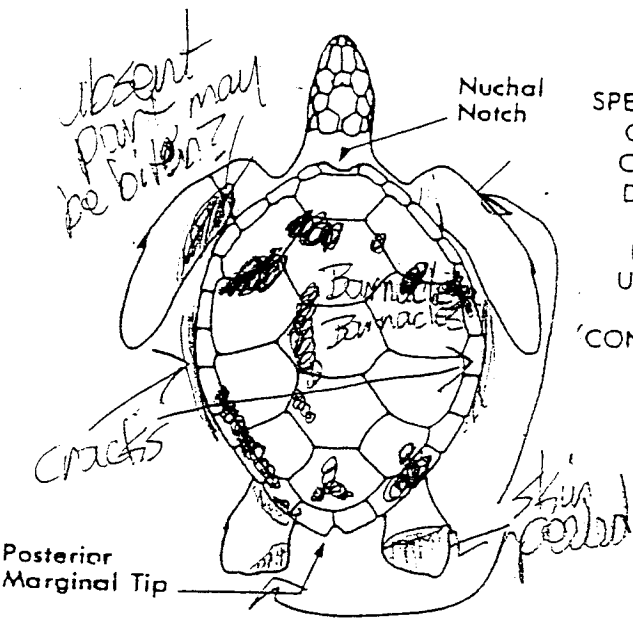 absent
part may
be biten?
Nuchal
Notch
SPE
C
C
D
U
'CON
Barnacles
Barnacles
cracks
skin
pealed
Posterior
Marginal Tip